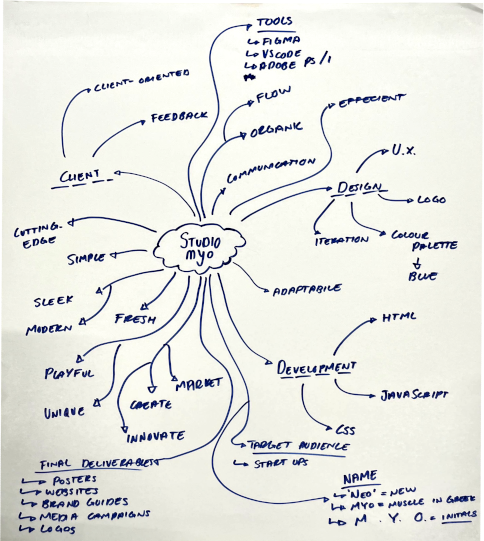 TOOLS
FIGMA
VSCODE
ADOBE PS/I
CLIENT-ORIENTED
FLOW
EFFECIENT
FEEDBACK
ORGANIC
U.X.
COMMUNICATION
CLIENT
DESIGN
LOGO
CUTTING-
EDGE
ITERATION
COLOUR
PALETTE
BLUE
STUDIO
MYO
SIMPLE
ADAPTABILE
SLEEK
MODERN
FRESH
HTML
PLAYFUL
DEVELOPMENT
MARKET
JAVASCRIPT
UNIQUE
CREATE
CSS
INNOVATE
TARGET AUDIENCE
START UPS
FINAL DELIVERABLES
POSTERS
WEBSITES
BRAND GUIDES
MEDIA CAMPAIGNS
LOGOS
NAME
'NEO' = NEW
MYO = MUSCLE IN GREEK
M. Y. O. = INITALS